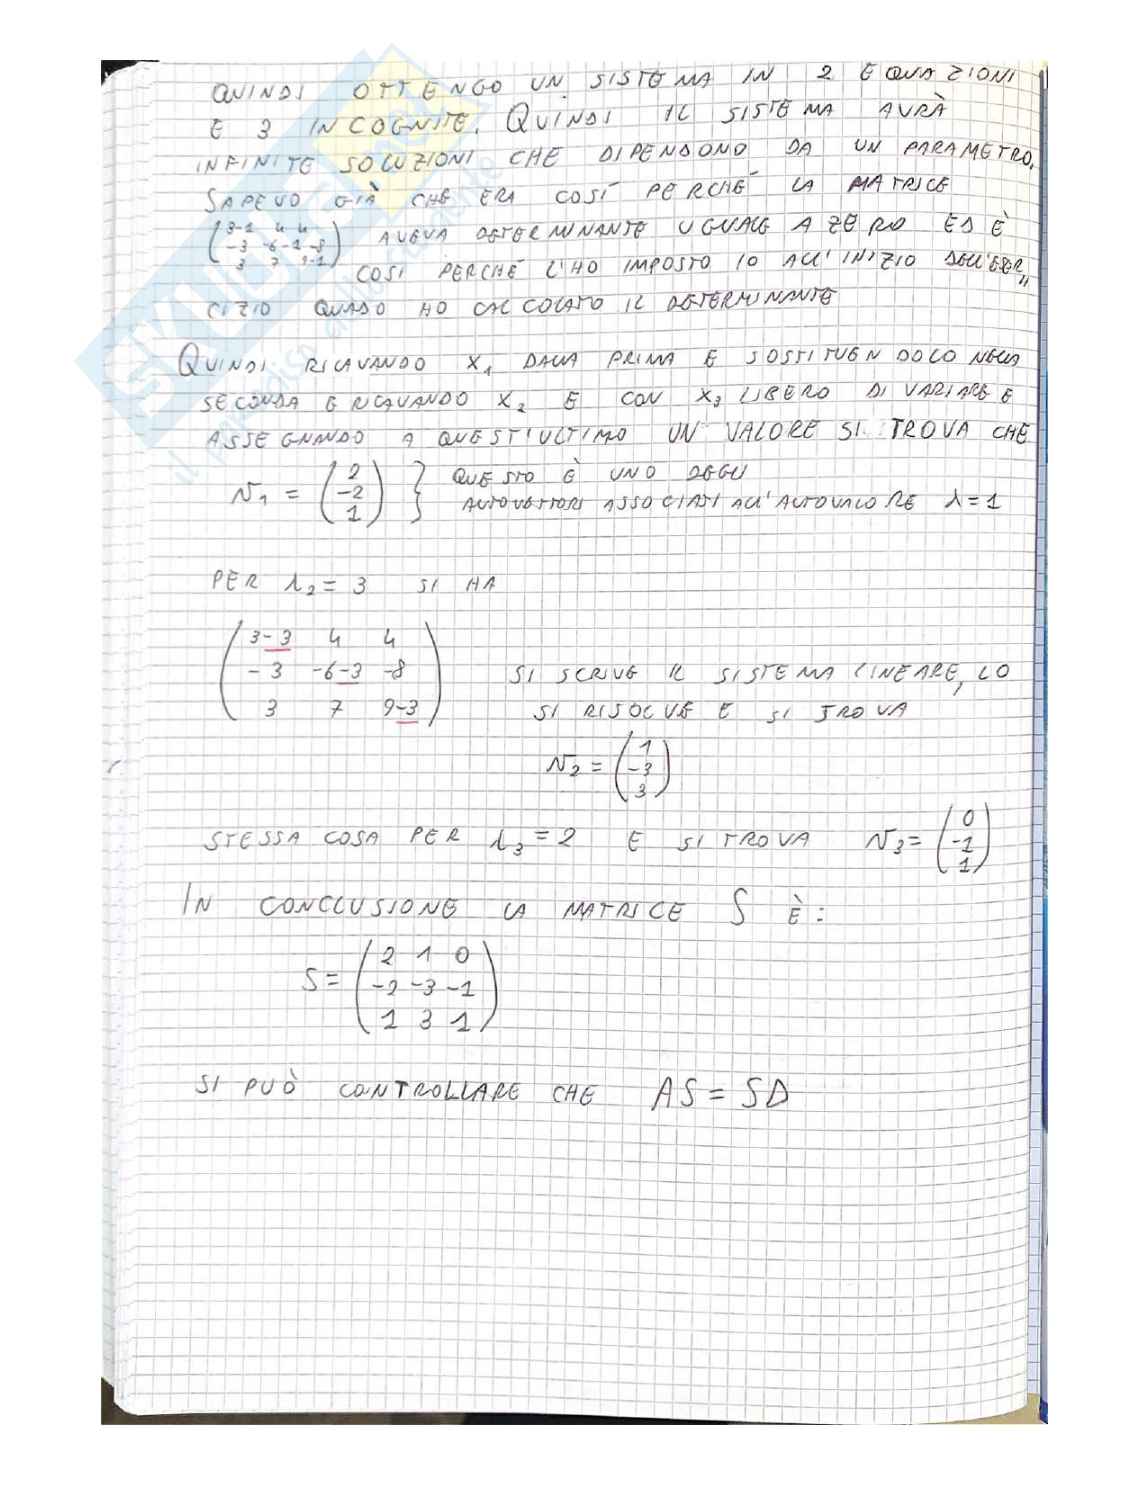 QUINDI OTTENGO UN SISTEMA IN 2 EQUAZIONI
E 3 INCOGNITE. QUINDI IL SISTEMA AVRÀ
INFINITE SOLUZIONI CHE DIPENDONO DA UN PARAMETRO.
SAPEVO GIÀ CHE ERA COSÍ PERCHÉ LA MATRICE
(3-1 4 4
-3 -6-1 -8
3 7 9-1) AVEVA DETERMINANTE UGUALE A ZERO ED È
COSÌ PERCHÉ L'HO IMPOSTO IO ALL'INIZIO DELL'ESER„
CIZIO QUADO HO CALCOLATO IL DETERMINANTE
QUINDI RICAVANDO X₁ DALLA PRIMA E SOSTITUENDOLO NELLA
SECONDA E RICAVANDO X₂ E CON X₃ LIBERO DI VARIARE E
ASSEGNANDO A QUEST'ULTIMO UN VALORE SI TROVA CHE
v₁ = (2
-2
1) } QUESTO È UNO DEGLI
AUTOVETTORI ASSOCIATI ALL'AUTOVALORE λ=1
PER λ₂= 3 SI HA
(3-3 4 4
-3 -6-3 -8
3 7 9-3) SI SCRIVE IL SISTEMA LINEARE, LO
SI RISOLVE E SI TROVA
v₂ = (1
-3
3)
STESSA COSA PER λ₃=2 E SI TROVA v₃= (0
-1
1)
IN CONCLUSIONE LA MATRICE S È:
S= (2 1 0
-2 -3 -1
1 3 1)
SI PUÒ CONTROLLARE CHE AS = SD